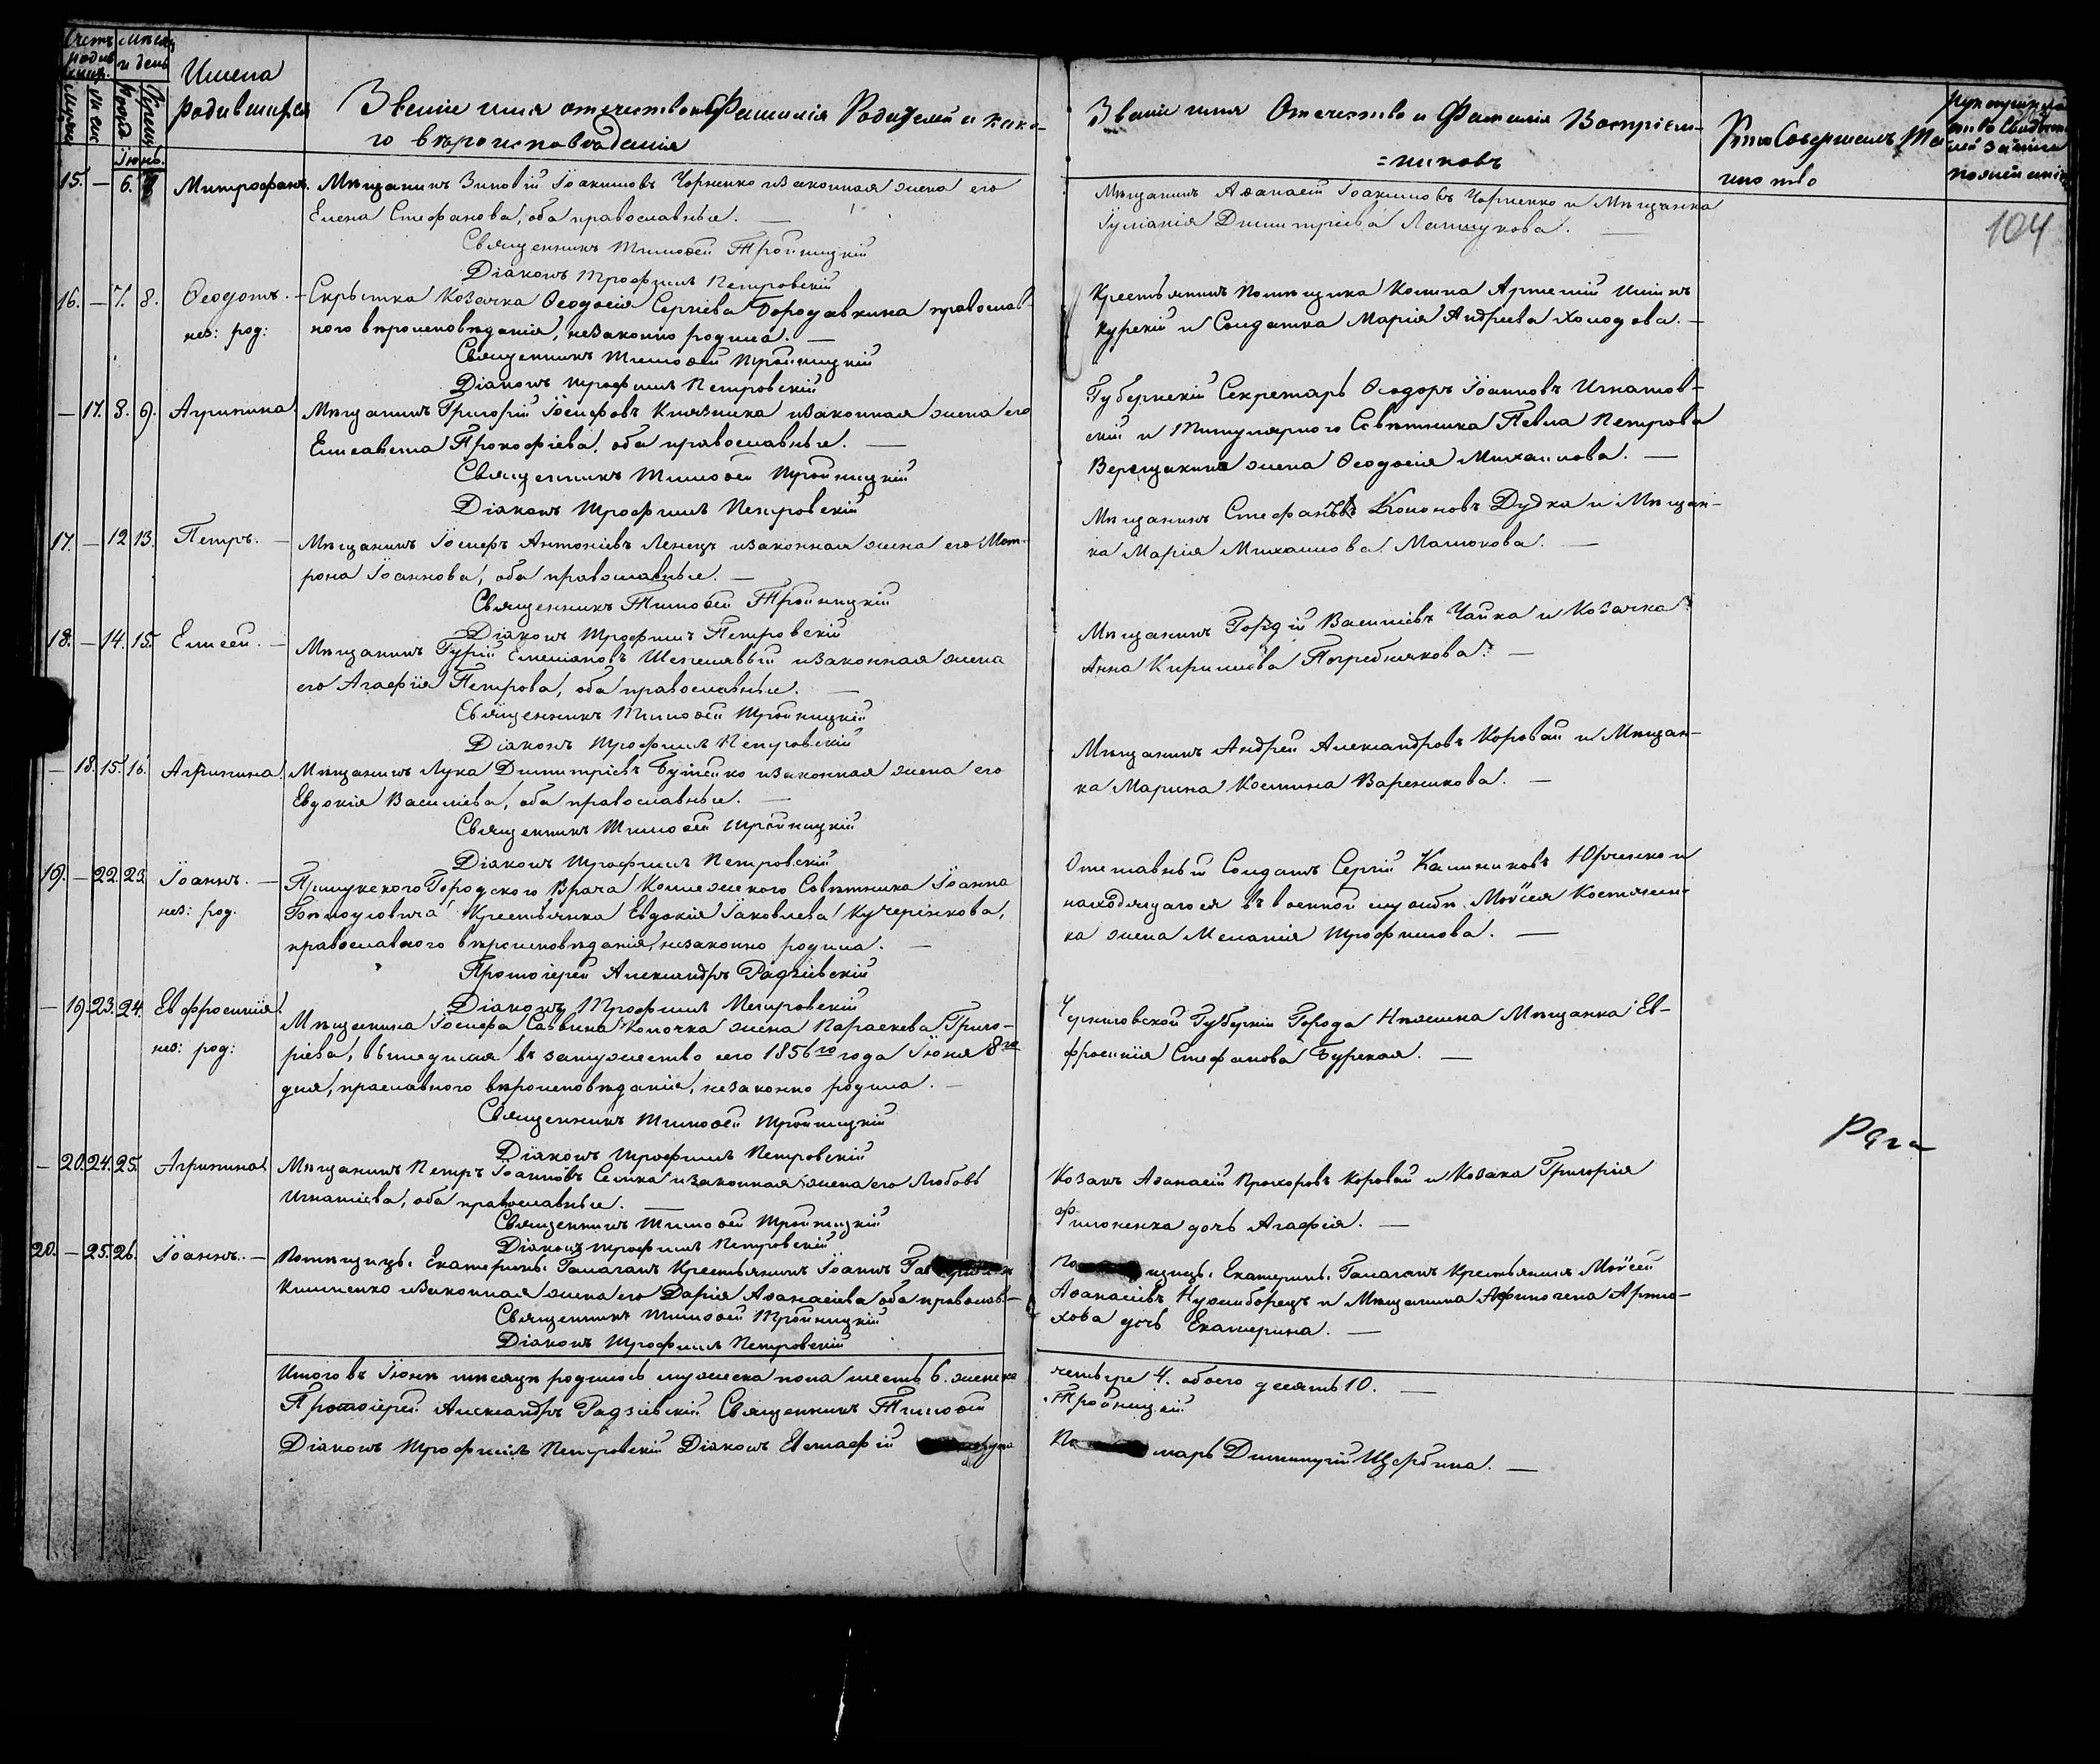 Счетъ
родив
шихся
Мѣсяцъ
и день
Имена
родившихся
Званіе имя отечество и Фамилія Родителей и како-
го вѣроисповѣданія
Званіе имя Отечество и Фамилія Воспріем-
=никовъ
Кто Совершалъ Та
инство
104
Іюнь.
15. — 6. Митрофанъ.
Мѣщанинъ Зиновій Іоакимовъ Чорненко изаконная жена его
Елена Стефанова, оба православные. —
Священникъ Тимофей Тройницкій
Діаконъ Трофимъ Петровскій
Мѣщанинъ Аѳанасій Іоакимовъ Чорненко и Мѣщанка
Іуліанія Димитріева Латукова. —
16. — 7. 8. Ѳеодотъ. —
нез: род:
Козачка Ѳеодосія Сергіева Бородавкина православ-
ного вѣроисповѣданія, незаконно родила. —
Священникъ Тимоѳей Тройницкій
Діаконъ Трофимъ Петровскій
Крестьянинъ Помѣщика Артемій
и Солдатка Марія Андреева Холодова. —
— 17. 8. 9. Агрипина
Мѣщанинъ Григорій Іосифовъ Князика изаконная жена его
Елисавета Прокофіева, оба православные. —
Священникъ Тимоѳей Тройницкій
Діаконъ Трофимъ Петровскій
Губернскій Секретарь Ѳеодоръ Іоанновъ Игнатов-
скій и Титулярного Совѣтника Павла Петрова
Верещакина жена Ѳеодосія Михаилова. —
17. — 12 13. Петръ. —
Мѣщанинъ Іосифъ Антоніевъ Ленецъ изаконная жена его Мат-
рона Іоаннова, оба православные. —
Священникъ Тимоѳей Тройницкій
Діаконъ Трофимъ Петровскій
Мѣщанинъ Стефанъ Кононовъ Дудка и Мѣщан-
ка Марія Михаилова Малюкова. —
18. — 14. 15. Елисей. —
Мѣщанинъ Гурій Емеліановъ Шепелявый изаконная жена
его Агафія Петрова, оба православные. —
Священникъ Тимоѳей Тройницкій
Діаконъ Трофимъ Петровскій
Мѣщанинъ Гордій Василіевъ Чайка и Козачка
Анна Кирилова Погребнякова. —
— 18. 15. 16. Агрипина
Мѣщанинъ Лука Димитріевъ Бутенко изаконная жена его
Евдокія Василіева, оба православные. —
Священникъ Тимоѳей Тройницкій
Діаконъ Трофимъ Петровскій
Мѣщанинъ Андрей Александровъ Коровай и Мѣщан-
ка Марина Костина Вареникова. —
19. — 22. 23. Іоаннъ. —
нез: род.
Прилукского Городского Врача Колежского Совѣтника Іоанна
Крестьянка Евдокія Іаковлева Кучеренкова,
православного вѣроисповѣданія, незаконно родила. —
Протоіерей Александръ Радзіевскій
Діаконъ Трофимъ Петровскій
Отставный Солдатъ Сергій Калиниковъ Юрченко и
находящагося въ военной службѣ Мойсея Костючен-
ка жена Меланія Трофимова. —
— 19. 23. 24. Евфросинія.
нез: род:
Мѣщанина Іосифа Саввина Копочка жена Параскева Григо-
ріева, вышедшая въ замужество сего 1856го года Іюня 8го
дня, праславного вѣроисповѣданія, незаконно родила. —
Священникъ Тимоѳей Тройницкій
Діаконъ Трофимъ Петровскій
Черниговской Губерніи Города Нѣжина Мѣщанка Ев-
фросинія Стефанова Бурская. —
— 20. 24. 25. Агрипина
Мѣщанинъ Петръ Іоанновъ Селика изаконная жена его Любовь
Игнатіева, оба православные. —
Священникъ Тимоѳей Тройницкій
Діаконъ Трофимъ Петровскій
Козакъ Аѳанасій Прохоровъ Коровай и Козака Григорія
Филоненка дочь Агафія. —
20. — 25. 26. Іоаннъ. —
Помѣщицы Екатерины Галаганъ Крестьянинъ Іоаннъ
изаконная жена его Дарія Аѳанасіева оба православ-
Священникъ Тимоѳей Тройницкій
Діаконъ Трофимъ Петровскій
Екатерины Галаганъ Крестьянинъ Мойсей
Аѳанасіевъ и Мѣщанина Афиногена Артю-
хова дочь Екатерина. —
Итого въ Іюнѣ мѣсяцѣ родилось мужеска пола шесть 6. женска
четыре 4. обоего десять 10. —
Протоіерей Александръ Радзіевскій Священникъ Тимоѳей
Тройницкій
Діаконъ Трофимъ Петровскій Діаконъ Евстафій
Димитрій Щербина. —